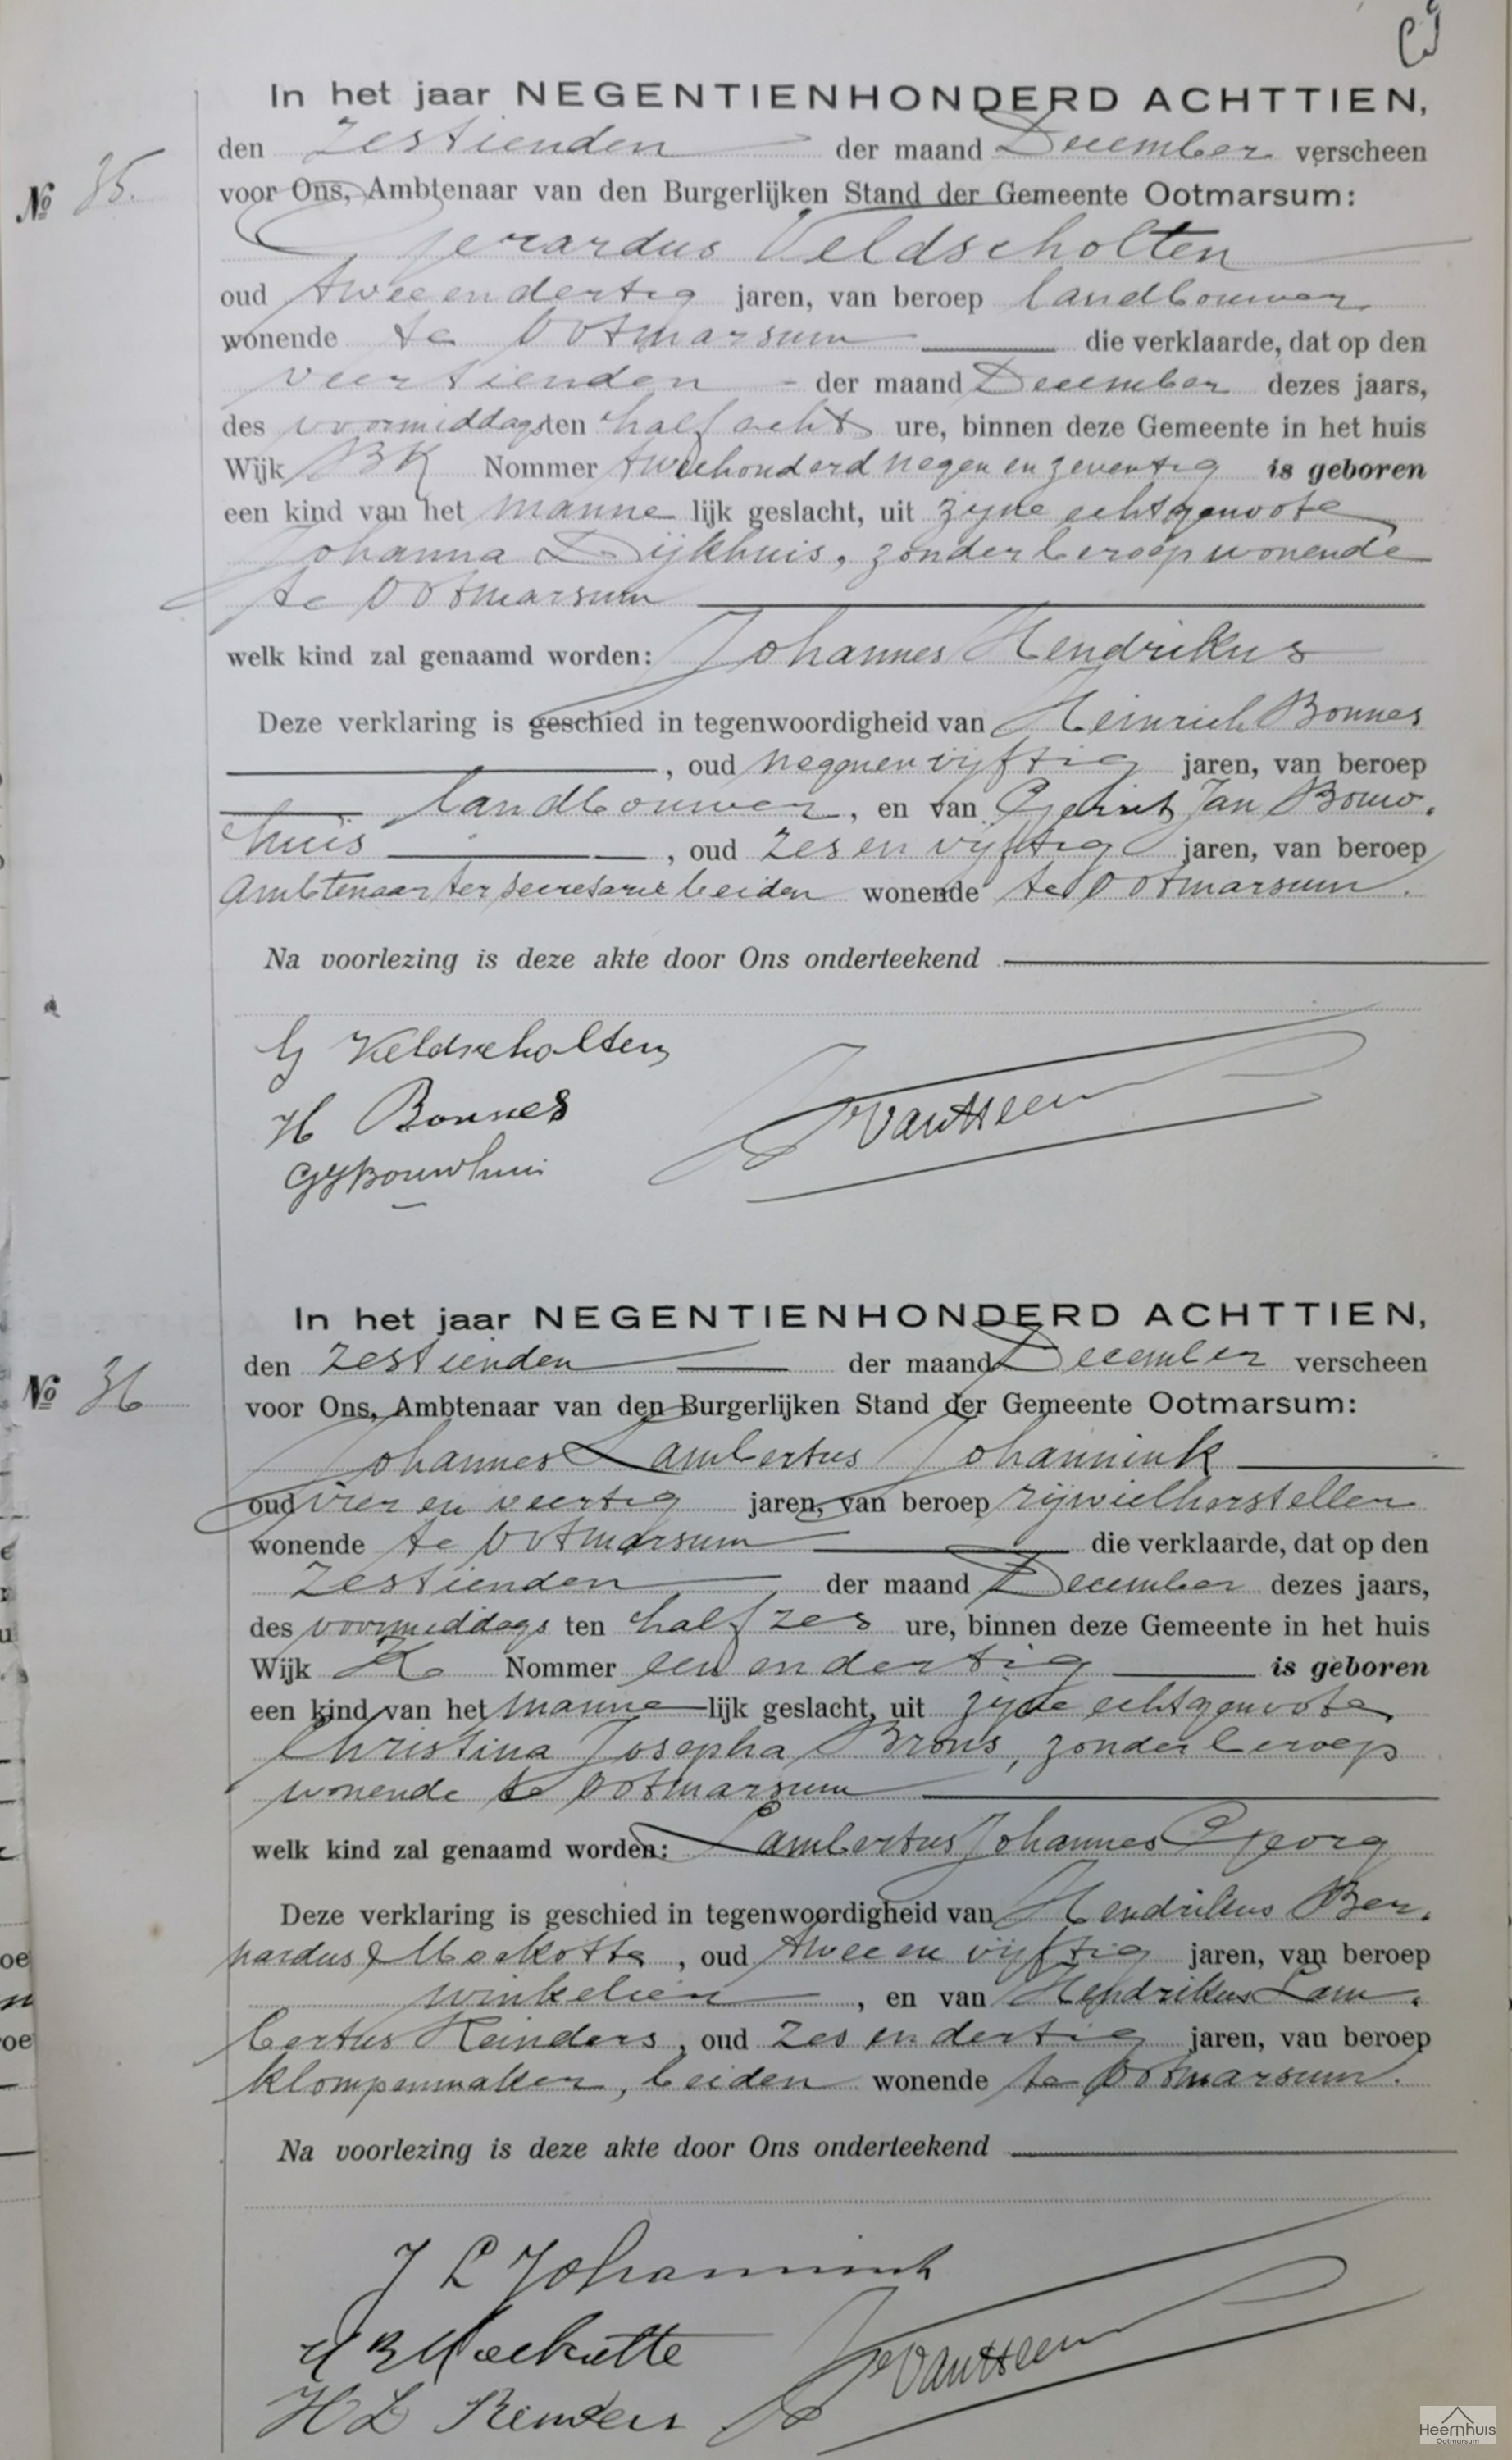 In het jaar NEGENTIENHONDERD ACHTTIEN,
den zestienden der maand December verscheen
No 35.
voor Ons, Ambtenaar van den Burgerlijken Stand der Gemeente Ootmarsum:
Gerardus Veldscholten
oud tweeendertig jaren, van beroep landbouwer
wonende te Ootmarsum die verklaarde, dat op den
veertienden der maand December dezes jaars,
des voormiddags ten half acht ure, binnen deze Gemeente in het huis
Wijk BK Nommer tweehonderd negen en zeventig is geboren
een kind van het manne lijk geslacht, uit zijne echtgenoote
Johanna Dijkhuis, zonder beroep wonende
te Ootmarsum
welk kind zal genaamd worden: Johannes Hendrikus
Deze verklaring is geschied in tegenwoordigheid van Heinrich Bonnes
, oud negenenvijftig jaren, van beroep
landbouwer, en van Gerrit Jan Bouw.
huis , oud zes en vijftig jaren, van beroep
Ambtenaar ter secretarie beiden wonende te Ootmarsum.
Na voorlezing is deze akte door Ons onderteekend
G Veldscholten
H Bonnes
GJBouwhuis
In het jaar NEGENTIENHONDERD ACHTTIEN,
den zestienden der maand December verscheen
No 36
voor Ons, Ambtenaar van den Burgerlijken Stand der Gemeente Ootmarsum:
Johannes Lambertus Johannink
oud vier en veertig jaren, van beroep rijwielhersteller
wonende te Ootmarsum die verklaarde, dat op den
zestienden der maand December dezes jaars,
des voormiddags ten half zes ure, binnen deze Gemeente in het huis
Wijk K Nommer een en dertig is geboren
een kind van het manne lijk geslacht, uit zijne echtgenoote
Christina Josepha Brons, zonder beroep
wonende te Ootmarsum
welk kind zal genaamd worden: Lambertus Johannes Georg
Deze verklaring is geschied in tegenwoordigheid van Hendrikus Ber.
nardus Moekotte, oud twee en vijftig jaren, van beroep
winkelier , en van Hendrikus Lam.
bertus Reinders, oud zes en dertig jaren, van beroep
klompenmaker, beiden wonende te Ootmarsum.
Na voorlezing is deze akte door Ons onderteekend
J L Johannink
H B Moekotte
H L Reinders
Heemhuis
Ootmarsum